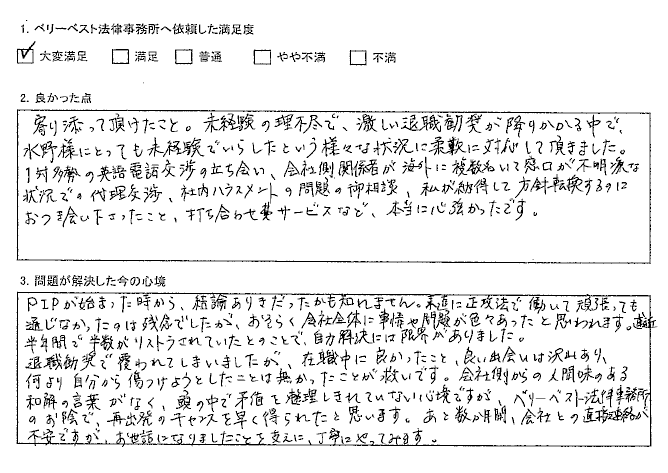 1. ベリーベスト法律事務所へ依頼した満足度
大変満足 満足 普通 やや不満 不満
2. 良かった点
寄り添って頂けたこと。未経験の理不尽で、激しい退職勧奨が降りかかる中で、
水野様にとっても未経験でいらしたという様々な状況に柔軟に対応して頂きました。
1対多数の英語電話交渉の立ち会い、会社側関係者が海外に複数名いて窓口が不明瞭な
状況での代理交渉、社内ハラスメントの問題の御相談、私が納得して方針転換するのに
おつき会い下さったこと、打ち合わせ費サービスなど、本当に心強かったです。
3. 問題が解決した今の心境
PIPが始まった時から、結論ありきだったかも知れません。実直に正攻法で働いて頑張っても
通じなかったのは残念でしたが、おそらく会社全体に事情や問題が色々あったと思われます。直近
半年間で半数がリストラされていたとのことで、自分解決には限界がありました。
退職勧奨で覆われてしまいましたが、在職中に良かったこと、良い出会いは沢山あり、
何より自分から傷つけようとしたことは無かったことが救いです。会社側からの人間味のある
和解の言葉がなく、頭の中で矛盾を整理しきれていない心境ですが、ベリーベスト法律事務所
のお陰で、再出発のチャンスを早く得られたと思います。あと数か月間、会社との直接連絡が
不安ですが、お世話になりましたことを支えに、丁寧にやってみます。